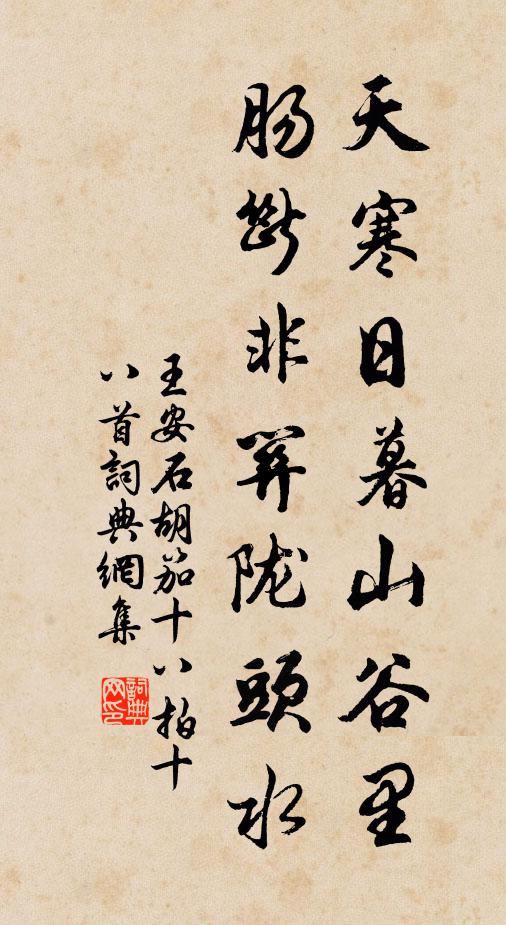 天寒日暮山谷里
肠断非关陇头水
王安石胡笳十八拍十
八首詞典網集
詞典
网印